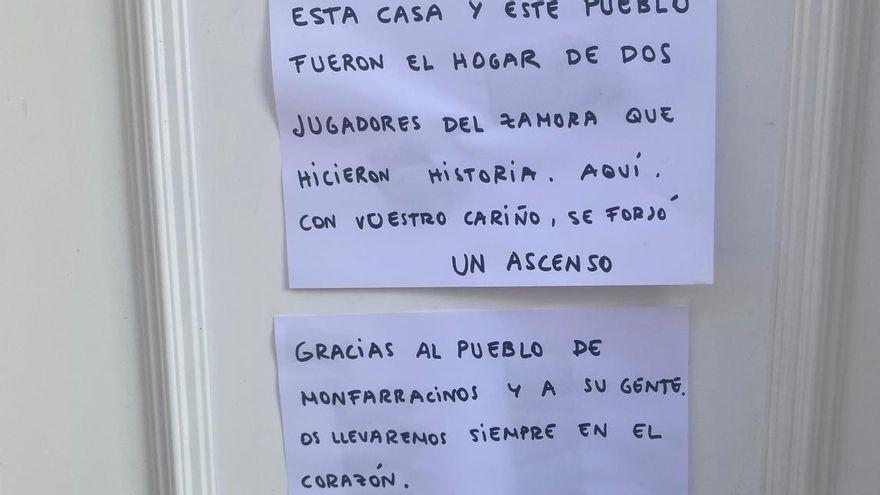 ESTA CASA Y ESTE PUEBLO
FUERON EL HOGAR DE DOS
JUGADORES DEL ZAMORA QUE
HICIERON HISTORIA. AQUÍ.
CON VUESTRO CARIÑO, SE FORJÓ
UN ASCENSO
GRACIAS AL PUEBLO DE
MONFARRACINOS Y A SU GENTE.
OS LLEVAREMOS SIEMPRE EN EL
CORAZÓN.